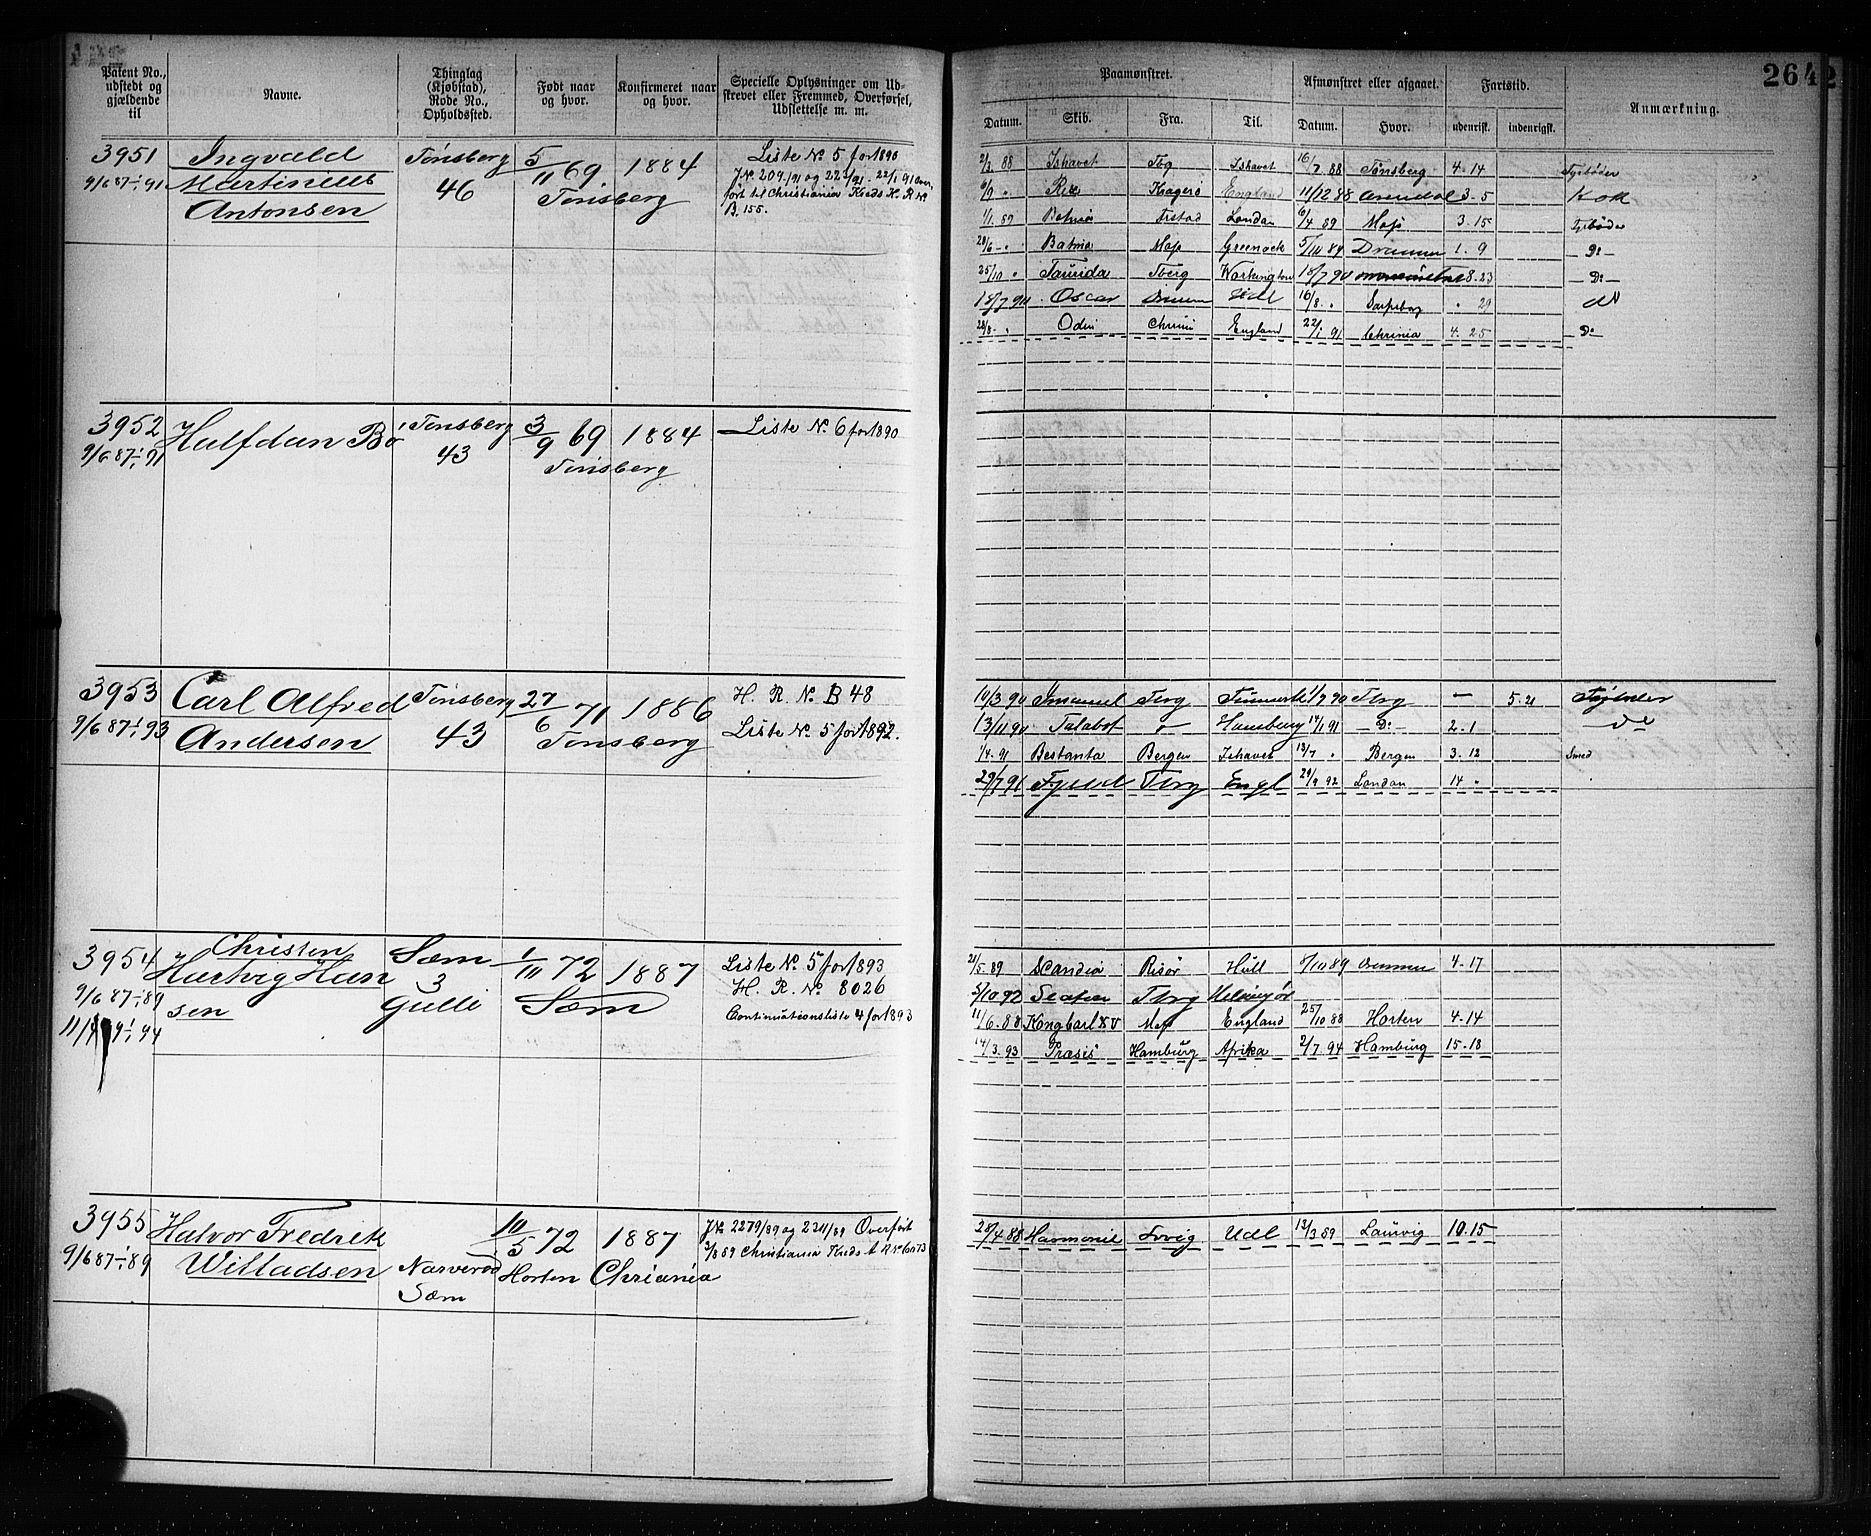 264
Patent No., udstedt og gjældende til
Navne.
Thinglag (Kjøbstad), Rode No., Opholdssted.
Født naar og hvor.
Konfirmeret naar og hvor.
Specielle Oplysninger om Udskrevet eller Fremmed, Overførsel, Udslettelse m. m.
Paamønstret.
Afmønstret eller afgaaet.
Fartstid.
Anmærkning.
Datum. Skib. Fra. Til. Datum. Hvor. udenrisk. indenrigsk.
3951 Ingvald Tønsberg 5/11 69 1884 Liste No 5 for 1890
9/6 87 1/1 91 Martinius 46 Tønsberg
Antonsen
B. 155.
2/3 88 Ishavet Tbg Ishavet 16/7 88 Tønsberg 4.14
Rex Kragerø England 11/12 88 Arendal 3.5 Kok
1/1 89 London 6/4 89 Moss 3.15
Moss Greenock 5/10 89 1.9 Do
25/10 " Taurida Tberg Workington 18/7 90 8.23 Do
18/7 90 Oscar Udl 16/8 " Sarpsborg " 29 do
Odin England 22/1 91 Chrinia 4.25 Do
3952 Halfdan Bø Tønsberg 3/9 69 1884 Liste No 6 for 1890
9/6 87 1/1 91 43 Tønsberg
3953 Carl Alfred Tønsberg 27/6 71 1886 H. R. No B 48
9/6 87 1/1 93 Andersen 43 Tønsberg Liste No 5 for 1892.
10/3 90 Tbrg Tbrg — 5.21
13/11 90 " Hamburg 14/1 91 Do 2.1 Do
1/4 91 Bestanta Bergen Ishavet 13/7 " Bergen 3.12 Smed
29/7 91 Tbrg Engl 29/9 92 London 14 "
3954 Christen Sæm 1/11 72 1887 Liste No 5 for 1893
Hartvig Han 3 Sæm H. R. No 8026
9/6 87 1/1 89 sen Gulli Continuationsliste 4 for 1893
1/1 94
21/5 89 Scandia Risør Hull 8/10 89 4.17
5/10 92 Tbrg Helsingør
11/6 88 Kong Carl XV Moss England 25/10 88 Horten 4.14
14/3 93 Præsis Hamburg Afrika 2/7 94 Hamburg 15.18
3955 Halvor Fredrik 10/5 72 1887 J No 2279/89 og 2311/89 Overført
9/6 87 1/1 89 Willadsen Narverød Horten Chriania 2/8 89 Christiania Kreds A R No 6073
Sæm
28/4 88 Harmonie Udl 13/3 89 Laurvig 10.15